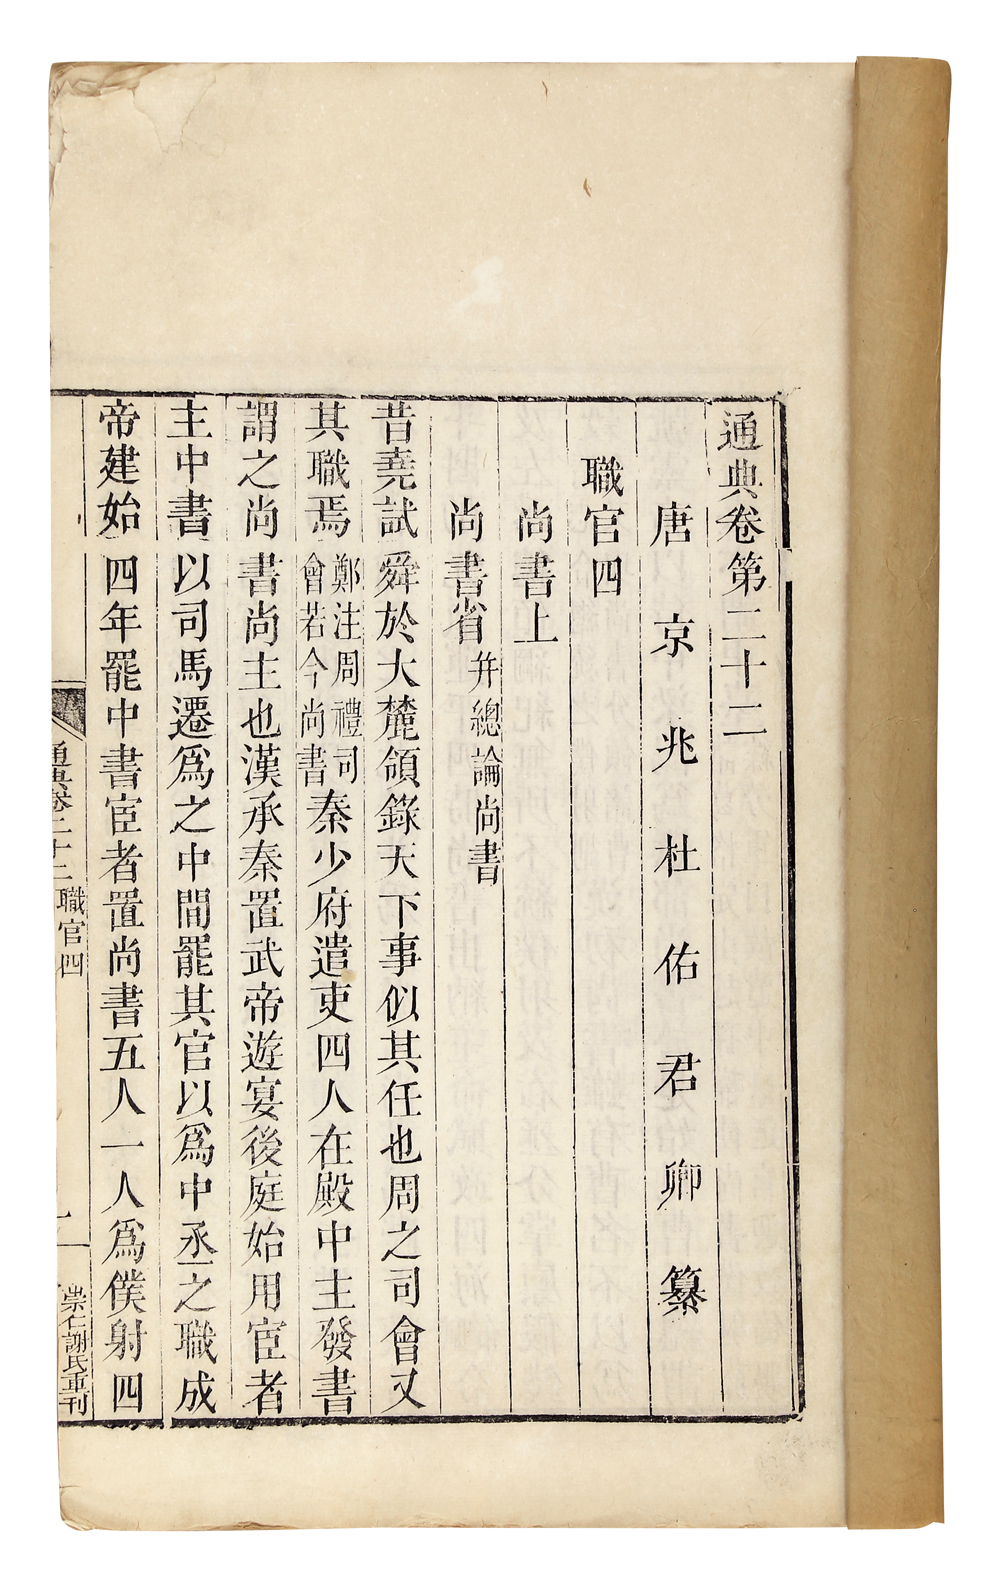 通典卷第二十二
唐京兆杜佑君卿纂
職官四
尚書上
尚書省并總論尚書
昔堯試舜於大麓領錄天下事似其任也周之司會又
其職焉鄭注周禮司會若今尚書秦少府遣吏四人在殿中主發書
謂之尚書尚主也漢承秦置武帝遊宴後庭始用宦者
主中書以司馬遷爲之中間罷其官以爲中丞之職成
帝建始四年罷中書宦者置尚書五人一人爲僕射四
通典卷二十二職官四
一
崇仁謝氏重刊